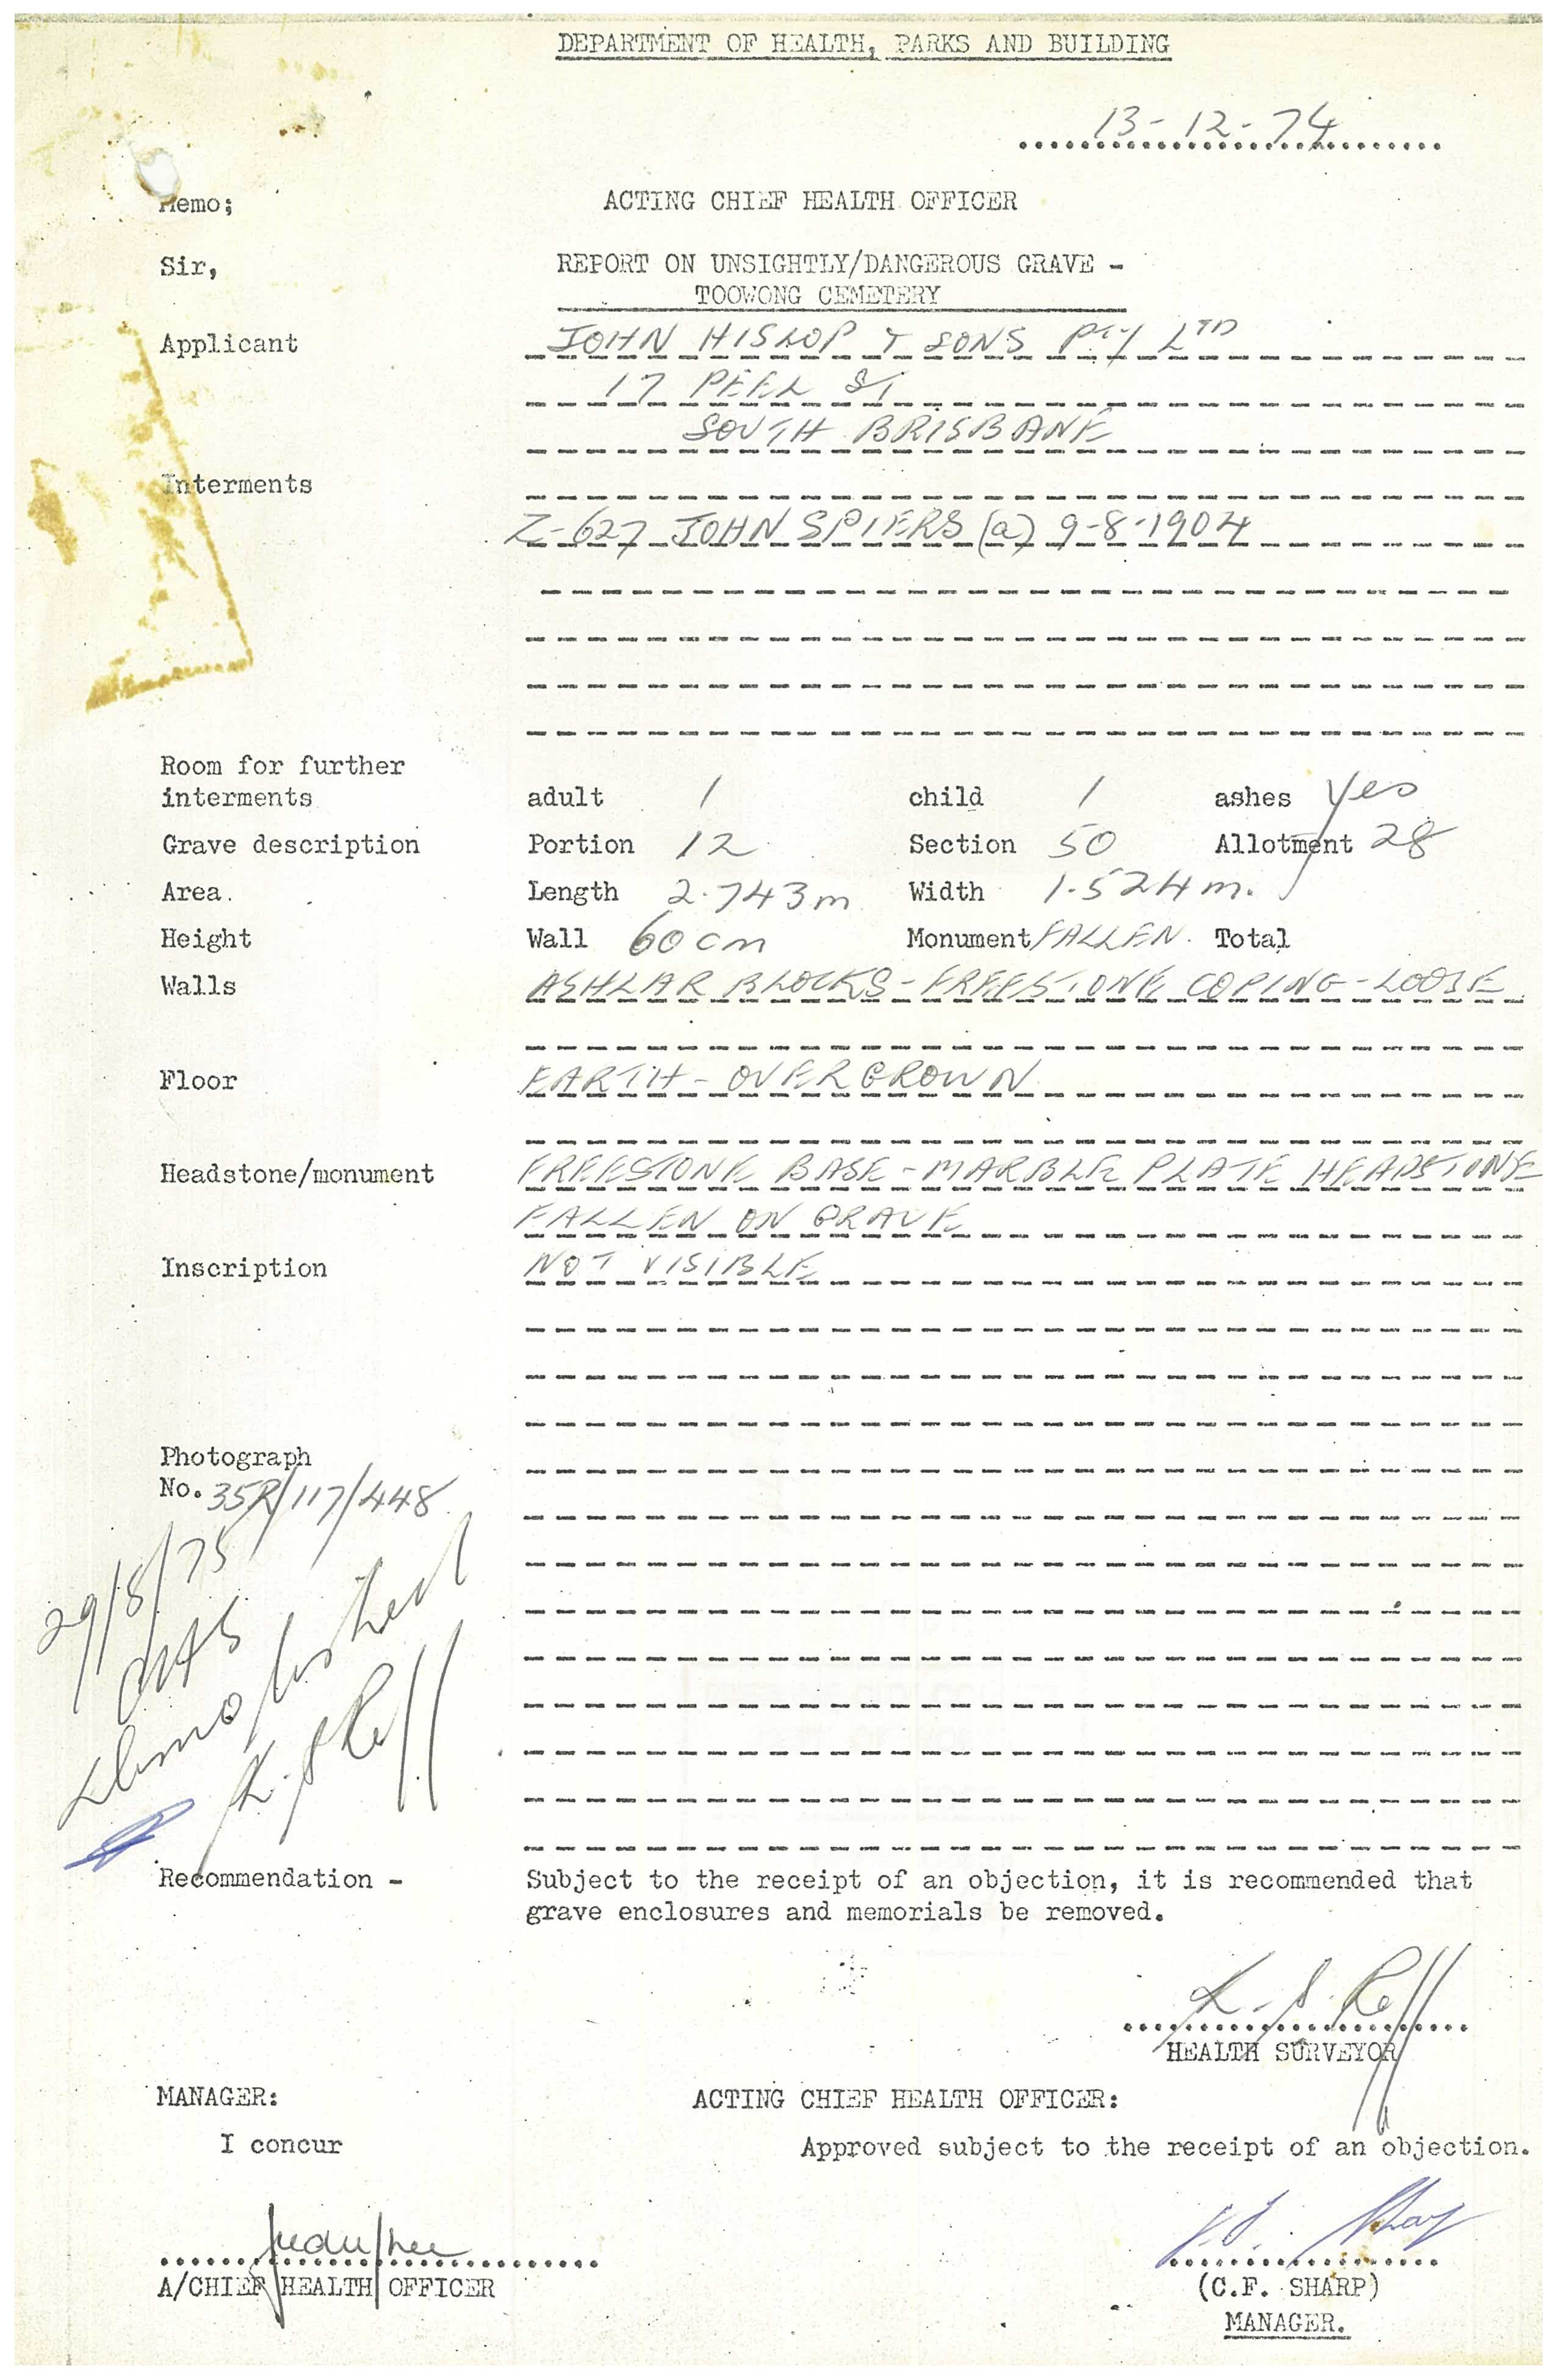 DEPARTMENT OF HEALTH, PARKS AND BUILDING
13-12-74
Memo; ACTING CHIEF HEALTH OFFICER
Sir, REPORT ON UNSIGHTLY/DANGEROUS GRAVE -
TOOWONG CEMETERY
Applicant JOHN HISLOP & SONS PTY LTD
17 PEEL ST
SOUTH BRISBANE
Interments
Z-627 JOHN SPIERS (a) 9-8-1904
Room for further
interments adult 1 child 1 ashes Yes
Grave description Portion 12 Section 50 Allotment 28
Area. Length 2.743m Width 1.524m.
Height Wall 60cm Monument FALLEN. Total
Walls ASHLAR BLOCKS - FREESTONE COPING - LOOSE
Floor EARTH - OVERGROWN
Headstone/monument FREESTONE BASE - MARBLE PLATE HEADSTONE
FALLEN ON GRAVE
Inscription NOT VISIBLE
Photograph
No. 35R/117/448
29/8/75
Demolished
Recommendation - Subject to the receipt of an objection, it is recommended that
grave enclosures and memorials be removed.
HEALTH SURVEYOR
MANAGER: ACTING CHIEF HEALTH OFFICER:
I concur Approved subject to the receipt of an objection.
A/CHIEF HEALTH OFFICER (C.F. SHARP)
MANAGER.